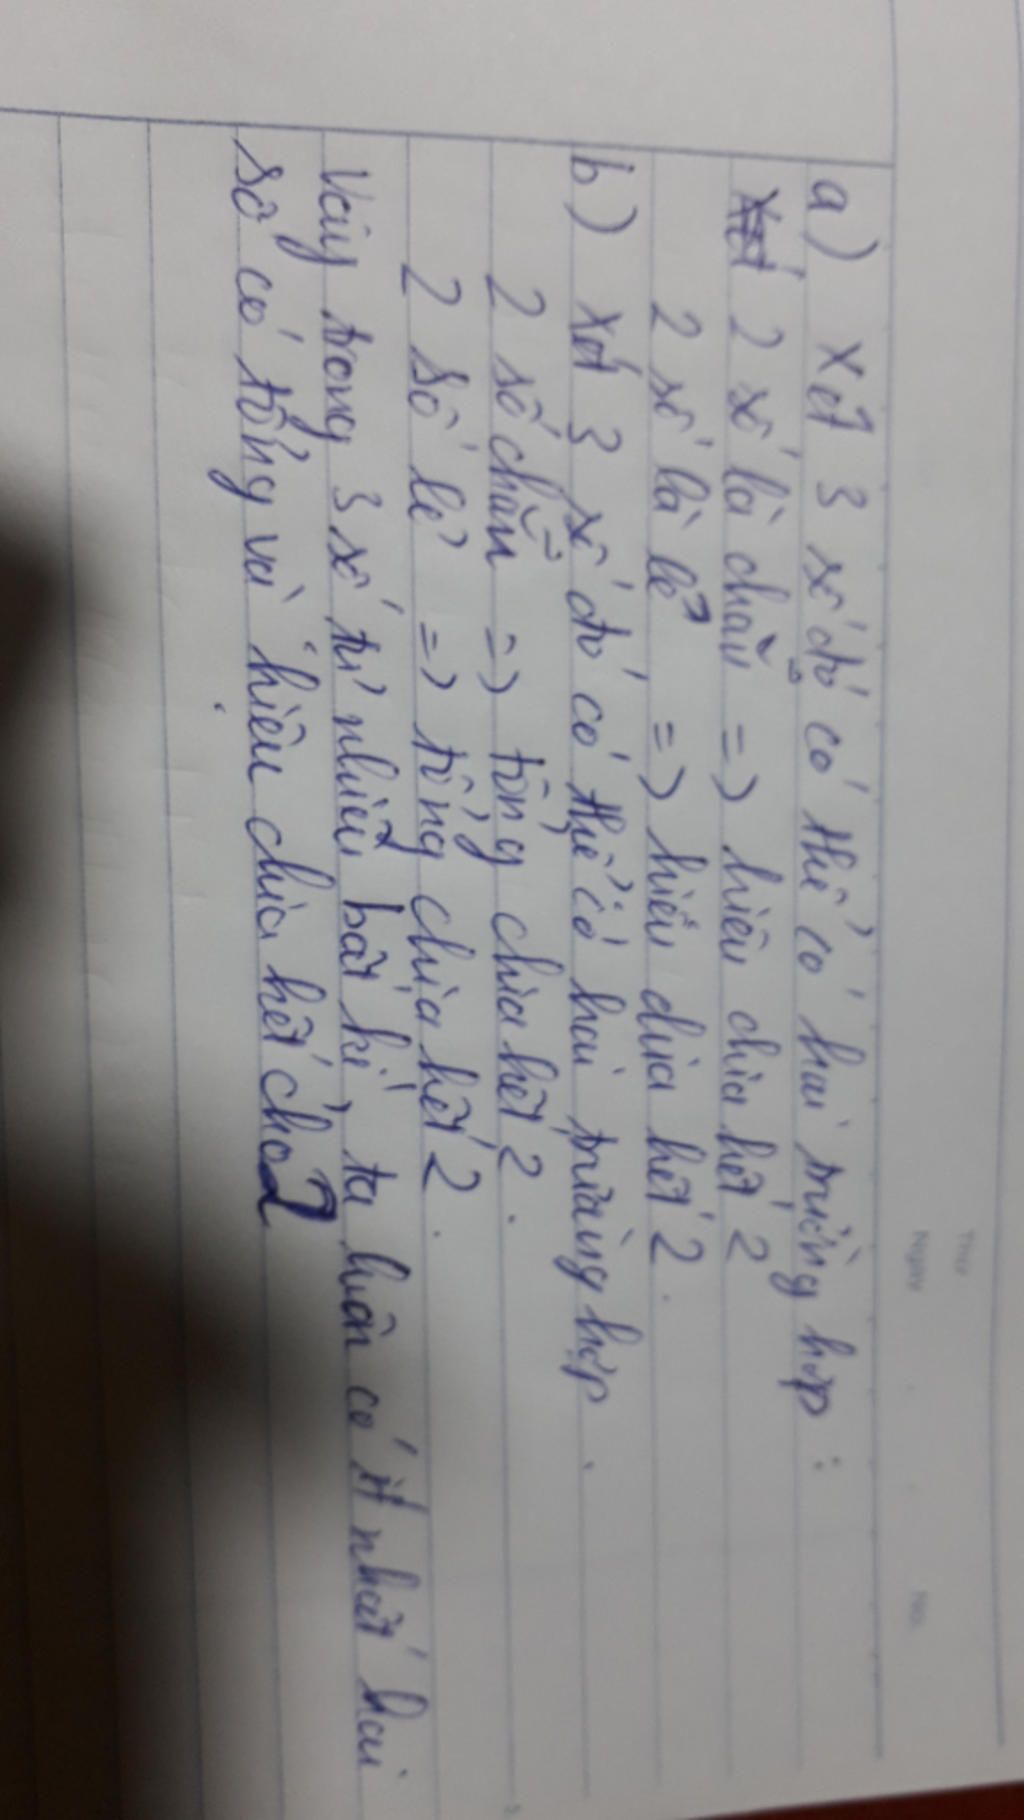 Thứ
Ngày
No.
a) Xét 3 số đó có thể có hai trường hợp :
2 số là chẵn => hiệu chia hết 2
2 số là lẻ => hiệu chia hết 2.
b) Xét 3 số đó có thể có hai trường hợp.
2 số chẵn => tổng chia hết 2.
2 số lẻ => tổng chia hết 2.
Vậy trong 3 số tự nhiên bất kì, ta luôn có ít nhất hai
số có tổng và hiệu chia hết cho 2